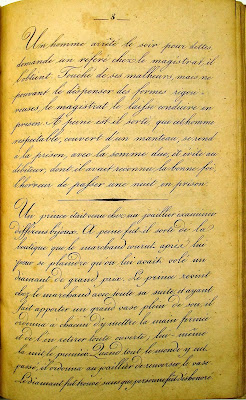 8
Un homme arrêté le soir pour dettes
demande un référé chez le magistrat, il
l'obtient. Touché de ses malheurs, mais ne
pouvant le dispenser des formes rigou-
reuses, le magistrat le laisse conduire en
prison. A peine est-il sorti, que cet homme
respectable, couvert d'un manteau, se rend
à la prison, avec la somme due, et évite au
débiteur, dont il avait reconnu la bonne foi,
l'horreur de passer une nuit en prison
Un prince était venu chez un joaillier examiner
différens bijoux. A peine fut-il sorti de la
boutique que le marchand courut après lui
pour se plaindre qu'on lui avait volé un
diamant de grand prix. Le prince revint
chez le marchand avec toute sa suite, et ayant
fait apporter un grand vase plein de son, il
ordonna à chacun d'y mettre la main fermée
et de l'en retirer toute ouverte; lui-même
la mit le premier. Quand tout le monde y eut
passé, il ordonna au joaillier de renverser le vase.
Le diamant fut trouvé sans que personne fut déshonoré